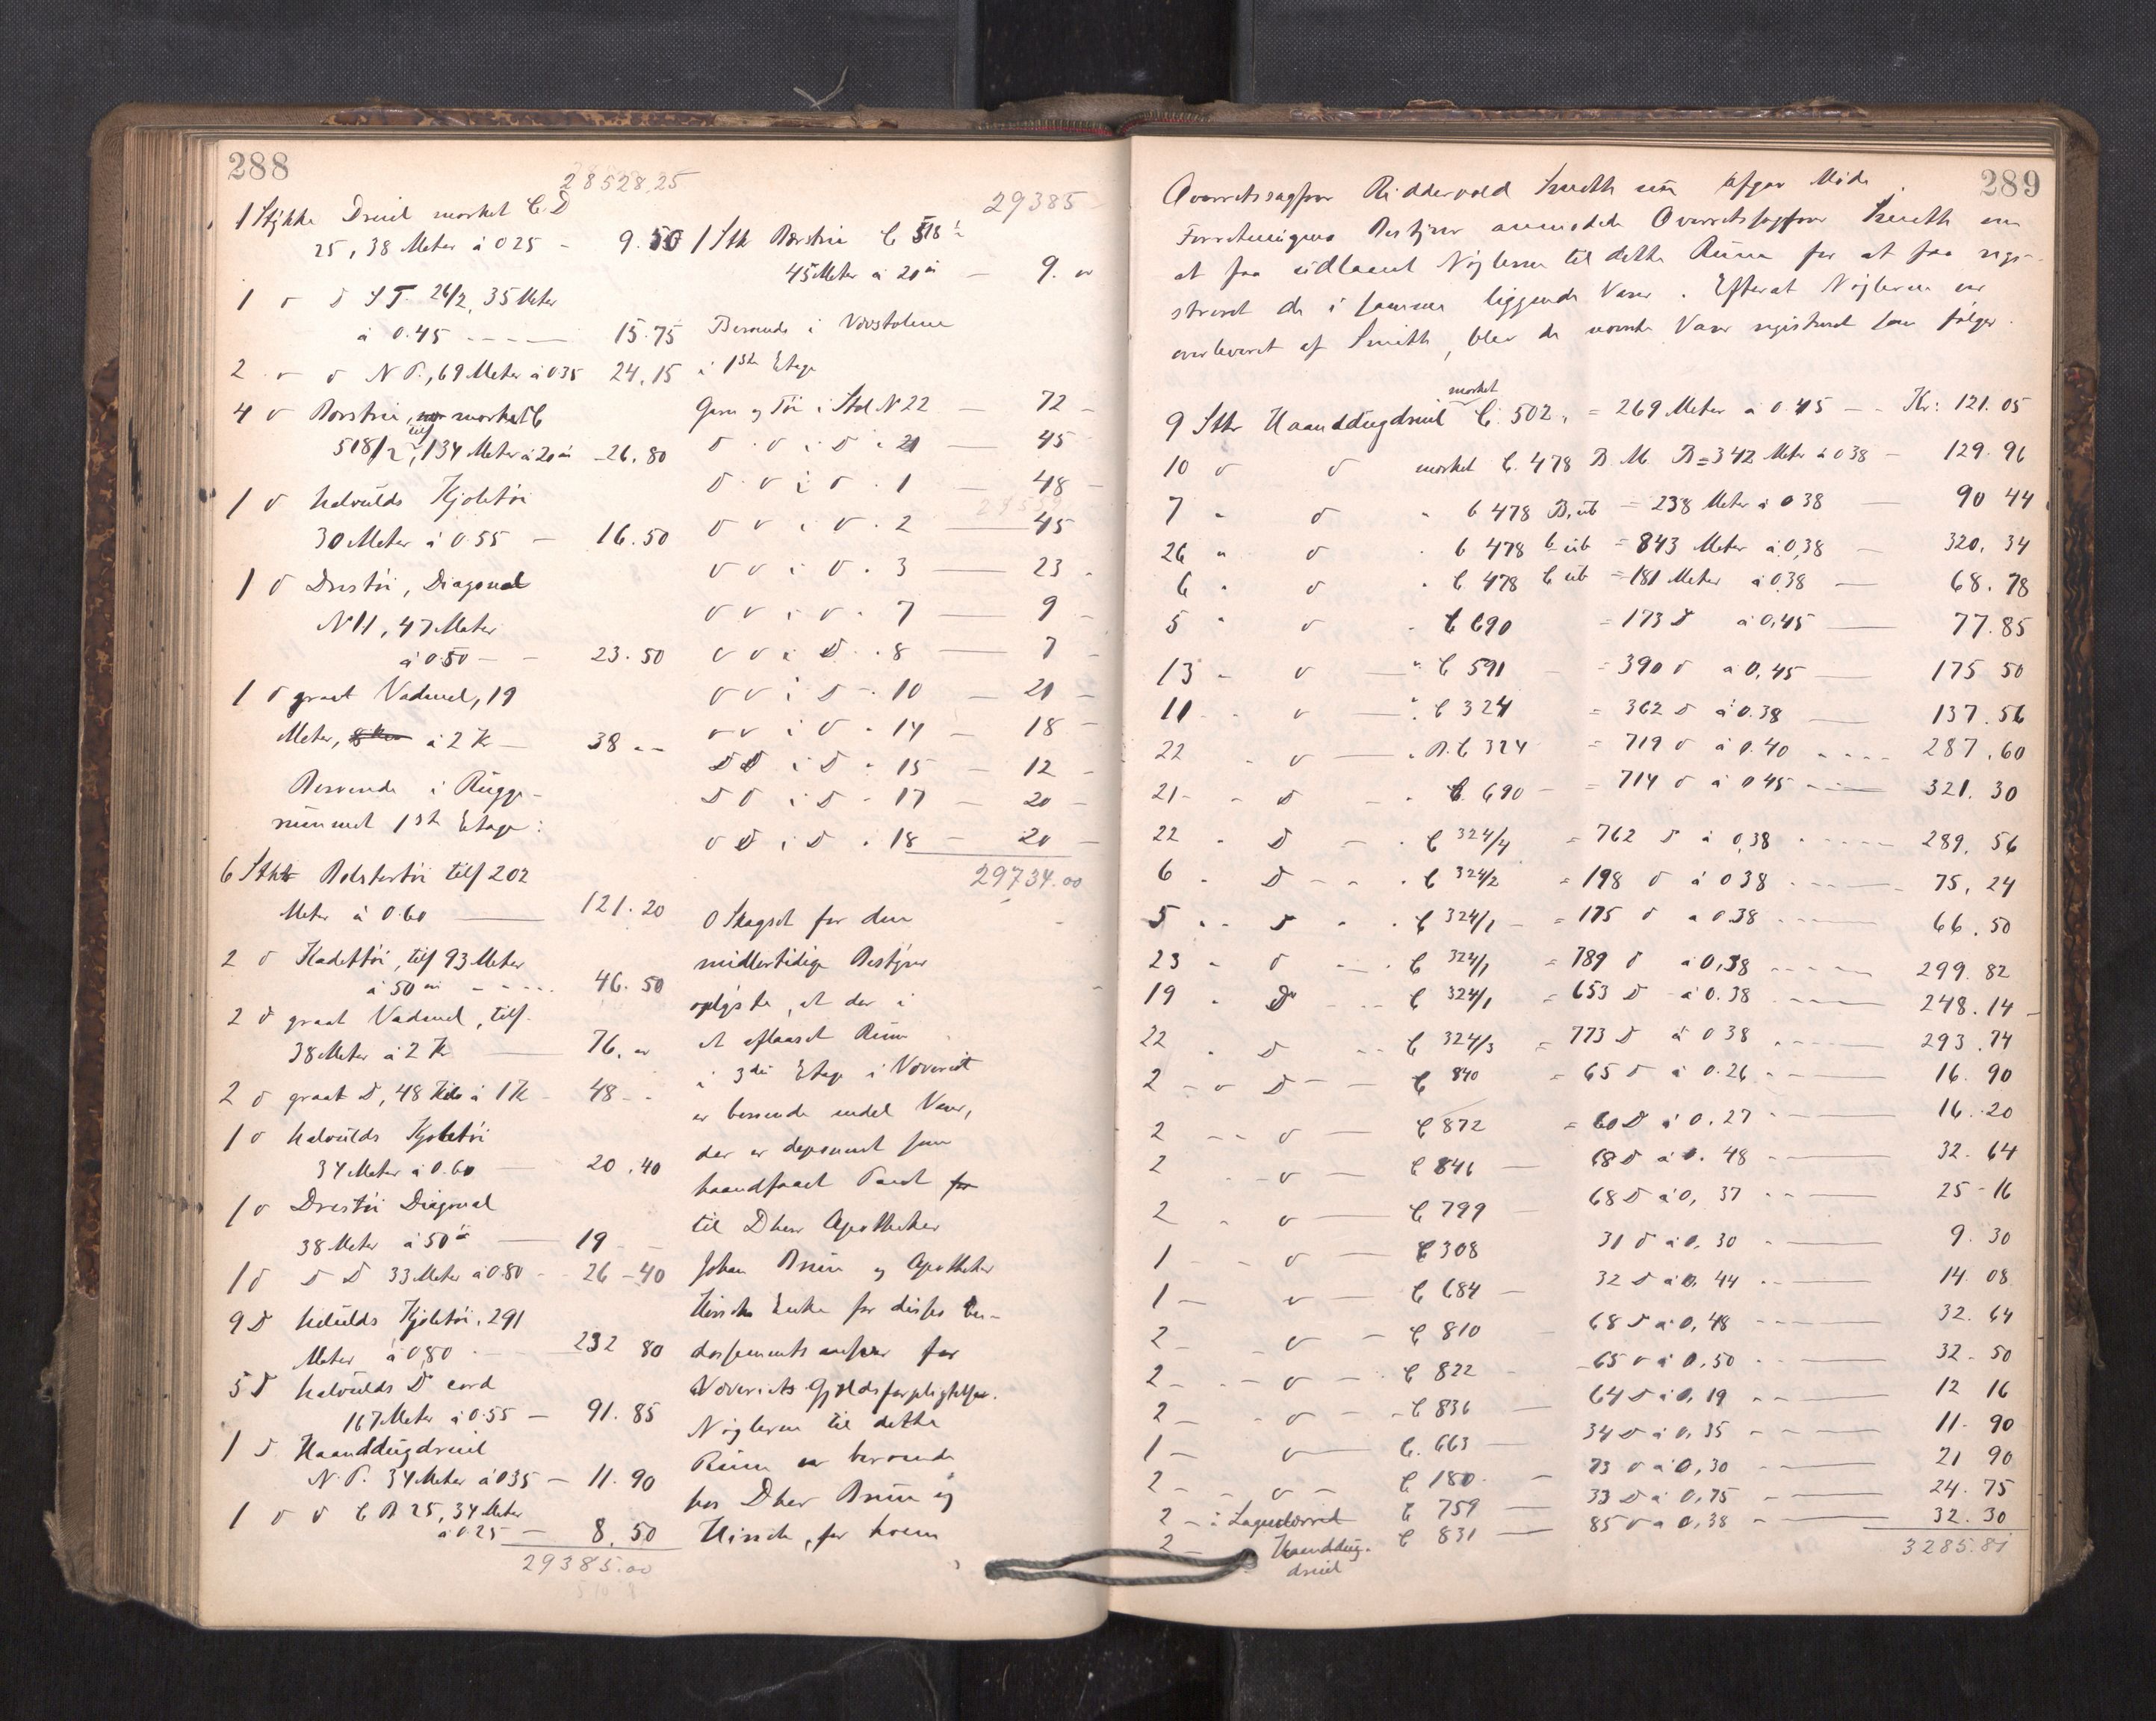 288
28528.25
1 Stykke Dreiel mærket C.D
25, 38 Meter à 025 - 9.50
1 v d S T. 26/2, 35 Meter
à 0.45 - - - - 15.75
2 v d N P., 69 Meter à 035 24.15
4 v Borstrie, mærket C
518/2, tils 134 Meter à 20 øre - 26.80
1 v halvulds Kjoletøi
30 Meter à 0.55 - 16.50
1 d Drestøi, Diagonal
N 11, 47 Meter
à 0.50 - - 23.50
1 d graat Vadmel, 19
Meter, à 2 Kr - 38 - -
Beroende i Rugge-
rummet 1ste Etage:
6 Stkk Bolstertøi tils 202
Meter à 0.60 — 121.20
2 d Kadettøi, tils 93 Meter
à 50 øre - - - - 46.50
2 d graat Vadmel, tils.
38 Meter à 2 Kr — 76. "
2 d graat D, 48 Kilo à 1 Kr - 48 - -
1 d halvulds Kjoletøi
34 Meter à 0.60 — 20.40
1 d Drestøi Diagonal
38 Meter à 50 ø — 19 - -
1 d D D 33 Meter à 0.80 - 26 - 40
9 D helulds Kjoletøi. 291
Meter à 0,80 - 232 80
5 D halvulds D cord
167 Meter à 0.55 - 91.85
1 D. Haanddugdreiel
N. P. 34 Meter à 035 - 11.90
1 v v C B 25, 34 Meter
à 025 - 8.50
29385.00
29385
1 Stk Borstrie C 518 ½
45 Meter à 20 øre — 9. "
Beroende i Vævstolene
i 1ste Etage
Garn og Tøi i Stol N 22 - 72 -
d " v i d " 21 — 45
d " v i d " 1 — 48 -
d v i v " 2 — 45
v v i v " 3 — 23 -
v v i v " 7 — 9 -
v v i D " 8 — 7 -
v v i D " 10 — 21 -
v v i v " 14 - 18 -
D D i D " 15 - 12 -
D d i D " 17 - 20 -
v D i D " 18 - 20 -
29734.00
O Skagset for den
midlertidige Bestyrer
oplyste, at der i
et aflaaset Rum
i 3die Etage i Væveriet
er beroende endel Varer,
der er deponeret som
haandfaaet Pant for
til Dherr Apotheker
Johan Bruun og Apotheker
Hirsch Enke for disses En-
dossementsansvar for
Væveriets Gjældsforpligtelser.
Nøglerne til dette
Rum er beroende
hos Dherr Bruun og
Hirsch, for hvem
289
Overretssagfører Riddervold Smith som afgav Møde.
Forretningens Bestyrer anmodede Overretssagfører Smith om
at faa udlaant Nøglerne til dette Rum for at faa regi-
streret de i samme liggende Varer. Efterat Nøglerne var
overleveret af Smith, blev de nævnte Varer registreret som følger.
mærket
9 Stkr Haanddugdreiel C. 502, = 269 Meter à 0.45 - - Kr: 121.05
10 v v mærket C. 478 B. M. B = 342 Meter à 038 - 129.96
7 " v " C 478 B, ub = 238 Meter à 0 38 — 90 44
26 " v " C 478 C ub = 843 Meter à 0,38 — 320.34
6 " v " C 478 C ub = 181 Meter à 0,38 — 68.78
5 " v " C 690 = 173 D à 0,45 — 77.85
13 " v — " C 591 = 390 d à 0,45 — 175 50
11 " v — " C 324 = 362 D à 0.38 — 137.56
22 " v — " B. C 324 = 719 d à 0.40 - - - - 287.60
21 - " D - " C. 690 - = 714 d à 045 - — 321.30
22 " D - " C 324/4 = 762 D à 0,38 - - - - - 289.56
6 " D - - " C 324/2 = 198 d à 038 - — - 75.24
5 " " D " " C 324/1 - = 175 d à 0.38 - - - - 66.50
23 " d - " C 324/1 = 789 d à 0,38 - - - - 299.82
19 " D - - C 324/1 = 653 D à 0.38 - - - — 248.14
22 " D - - C 324/3 = 773 D à 0 38 - - - — 293.74
2 - v D - - C 840 = 65 D à 0.26 - - — 16.90
2 - - v — C 872 = 60 D à 0.27 - — 16.20
2 " - v — C 846 — 68 D à 0.48 - — 32.64
2 " v — C 799 - 68 D à 0,37 - - — 25 - 16
1 - v — C 308 31 d à 0,30 - — 9.30
1 - v — C 684 - 32 D à 0,44 - - — 14.08
2 - v - C 810 - 68 D à 0,48 - - — 32.64
2 - - v - C 822 - 65 v à 0,50 - - — 32 - 50
2 - - v - - C 836 — 64 D à 0,19 - - — 12 16
1 - v — C. 663 — 34 D à 0,35 - - — 11.90
2 - - v - C 180 - - 73 v à 0,30 - — 21 90
2 - " Lagenlærred C 759 — 33 D à 0,75 - — 24.75
2 - Haanddug- C 831 — 85 v à 0,38 - — 32.30
dreiel
3285.81